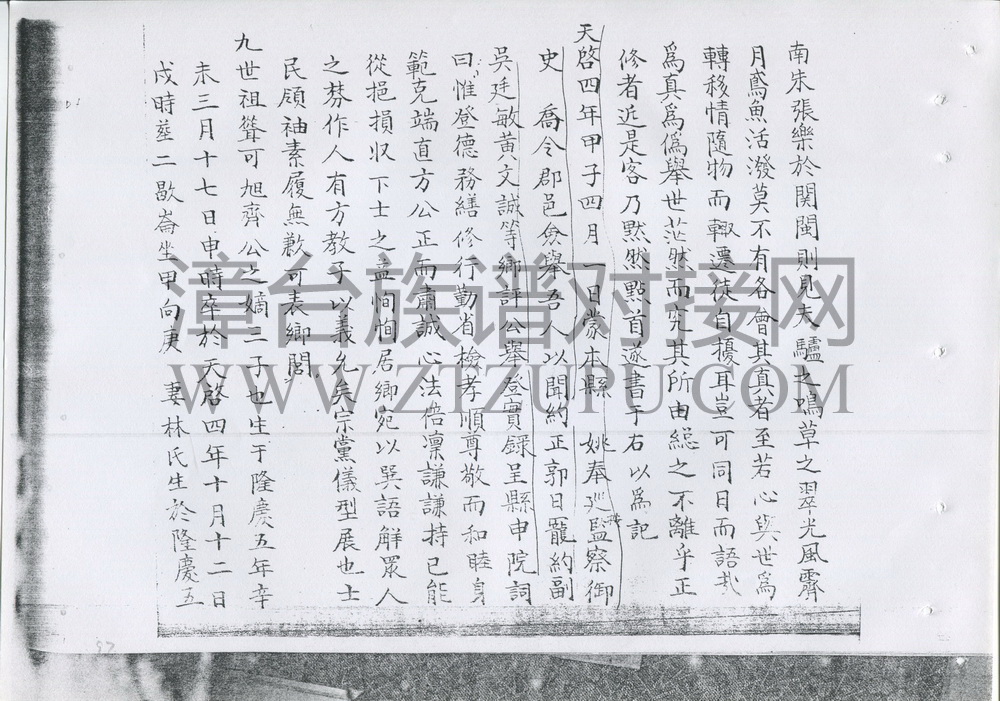 南朱張樂於関閩則見夫驢之鳴草之翠光風霽
月鳶魚活潑莫不有各會其真者至若心與世爲
轉移情隨物而輙遷徒自擾耳豈可同日而語哉
爲真爲僞舉世茫然而究其所由総之不離乎正
修者近是客乃黙然點首遂書于右以爲記
天啓四年甲子四月一日蒙本縣 姚奉廵按監察御
史 喬令郡邑僉舉吾人以聞約正郭日寵約副
吳廷敏黄文誠等鄉評公舉登實録呈縣申院詞
曰惟登德務繕修行勤省檢孝順尊敬而和睦身
範克端直方公正而肅誠心法倍凛謙謙持已能
從挹損収下士之益恂恂居鄉宛以巽語解眾人
之棼作人有方教子以義允矣宗黨儀型展也士
民領袖素履無歉可表鄉閭
九世祖聳可旭齊公之嫡三子也生于隆慶五年辛
未三月十七日申時卒於天啓四年十月十二日
戌時塟二歇崙坐甲向庚 妻林氏生於隆慶五
漳台族谱对接网
WWW.ZTZUPU.COM
97